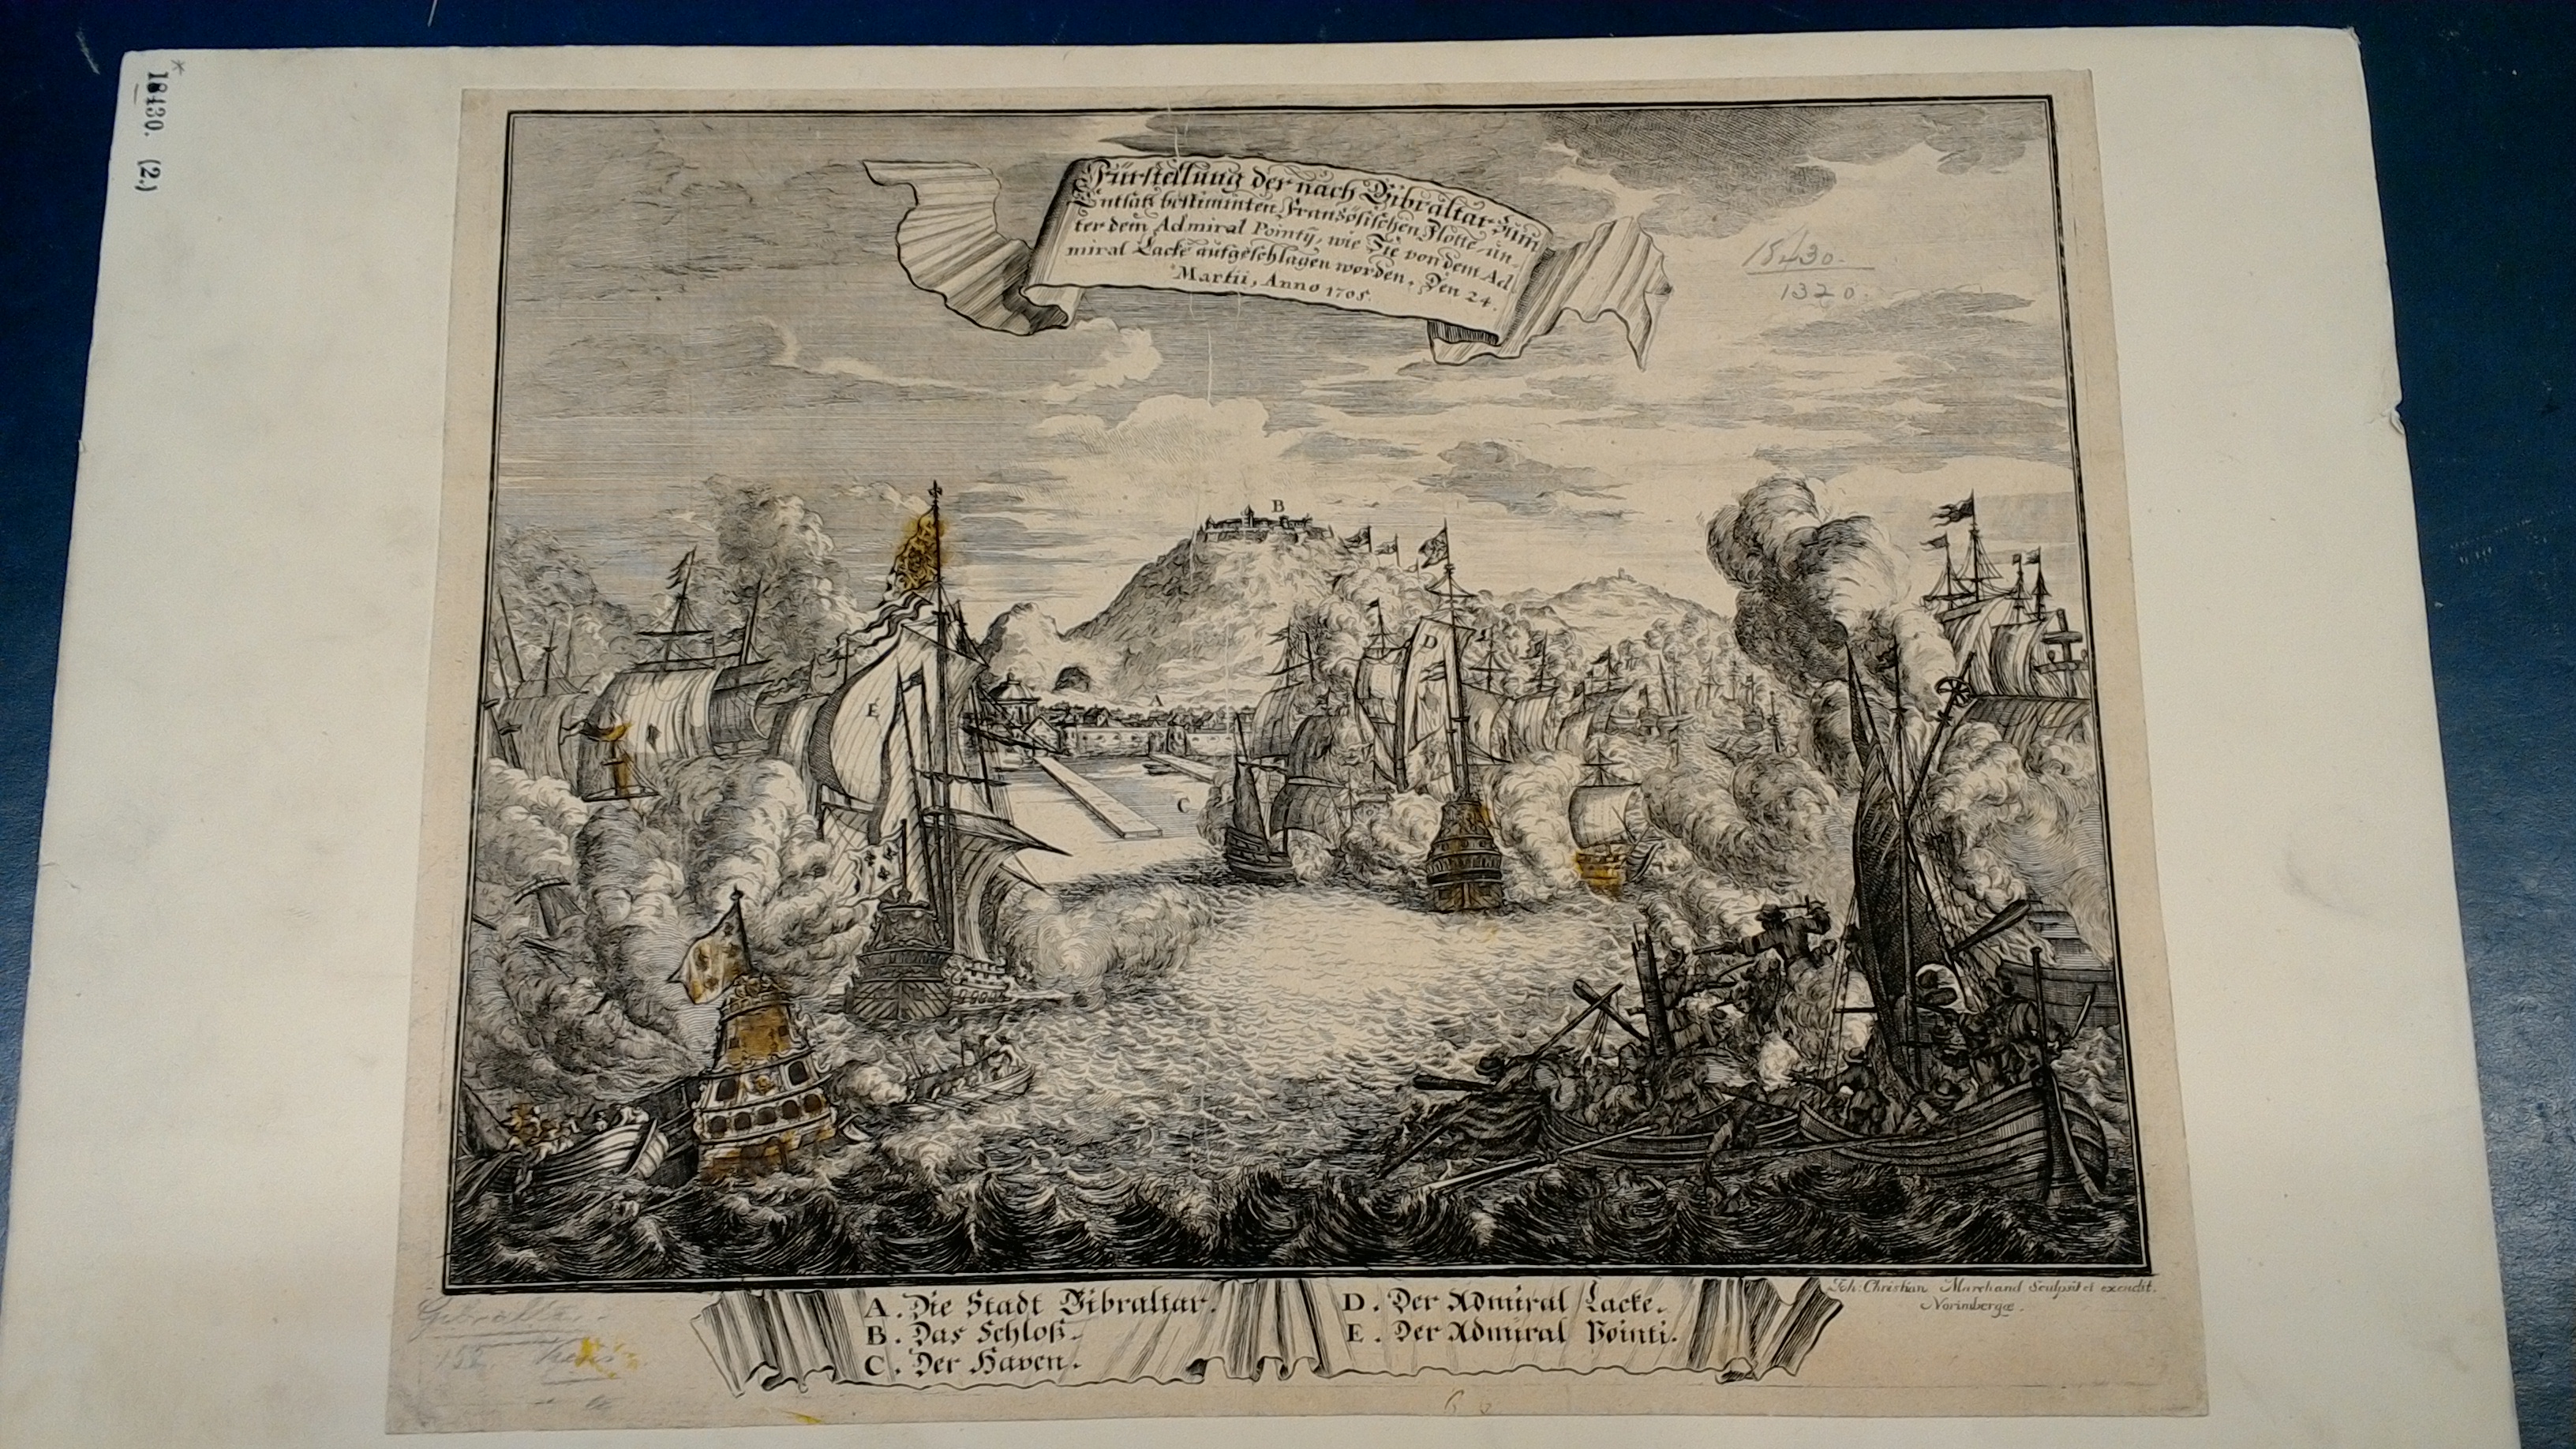 18430. (2.)
Fürstellung der nach Gibraltar zum
Entsatz bestimmten Französischen Flotte, un-
ter dem Admiral Pointÿ, wie Sie von dem Ad-
miral Lacke aufgeschlagen worden, Den 24.
Martii, Anno 1705.
18430.
1320.
B
D
E
A
C
A. Die Stadt Gibraltar.
B. Das Schloß.
C. Der Haven.
D. Der Admiral Lacke.
E. Der Admiral Pointi.
Joh: Christian Marchand Sculpsit et excudit.
Norimbergæ.